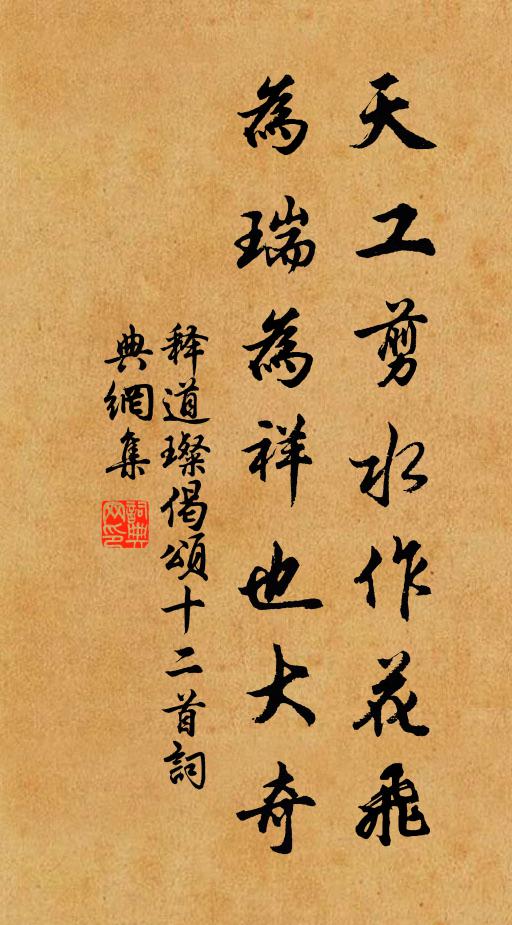 天工剪水作花飛
為瑞為祥也大奇
释道璨偈頌十二首詞
典網集
詞典
网印